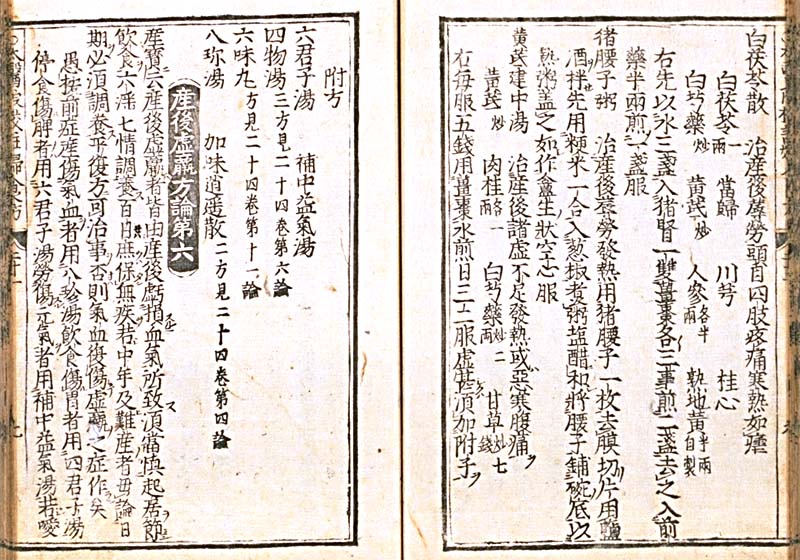 白茯苓散 治産後蓐勞頭目四肢疼痛寒熱如瘧
白茯苓一兩 當歸 川芎 桂心
白芍藥炒 黃芪炒 人參各半兩 熟地黃半兩自製
右先以水三盞入猪腎一雙薑棗各三事煎二盞去之入前
藥半兩煎一盞服
猪腰子粥 治産後蓐勞發熱用猪腰子一枚去膜切片用鹽
酒拌先用粳米一合入葱椒煑粥鹽醋和將腰子鋪碗底以
熱粥盖之如作盦生狀空心服
黃芪建中湯 治産後諸虛不足發熱或惡寒腹痛
黃芪炒 肉桂各一兩 白芍藥炒二兩 甘草炒七錢
右每服五錢用薑棗水煎日三二服虛甚須加附子
附方
六君子湯 補中益氣湯
四物湯三方見二十四卷第六論
六味丸方見二十四卷第十一論
八珎湯 加味逍遥散二方見二十四卷第四論
産後虛羸方論第六
産寳云産後虛羸者皆由産後虧損血氣所致須當愼起居節
飲食六淫七情調養百日庶保無疾若中年及難産者毋論日
期必須調養平復方可治事否則氣血復傷虛羸之症作矣
愚按前症産傷氣血者用八珍湯飲食傷胃者用四君子湯
停食傷脾者用六君子湯勞傷元氣者用補中益氣湯若噯